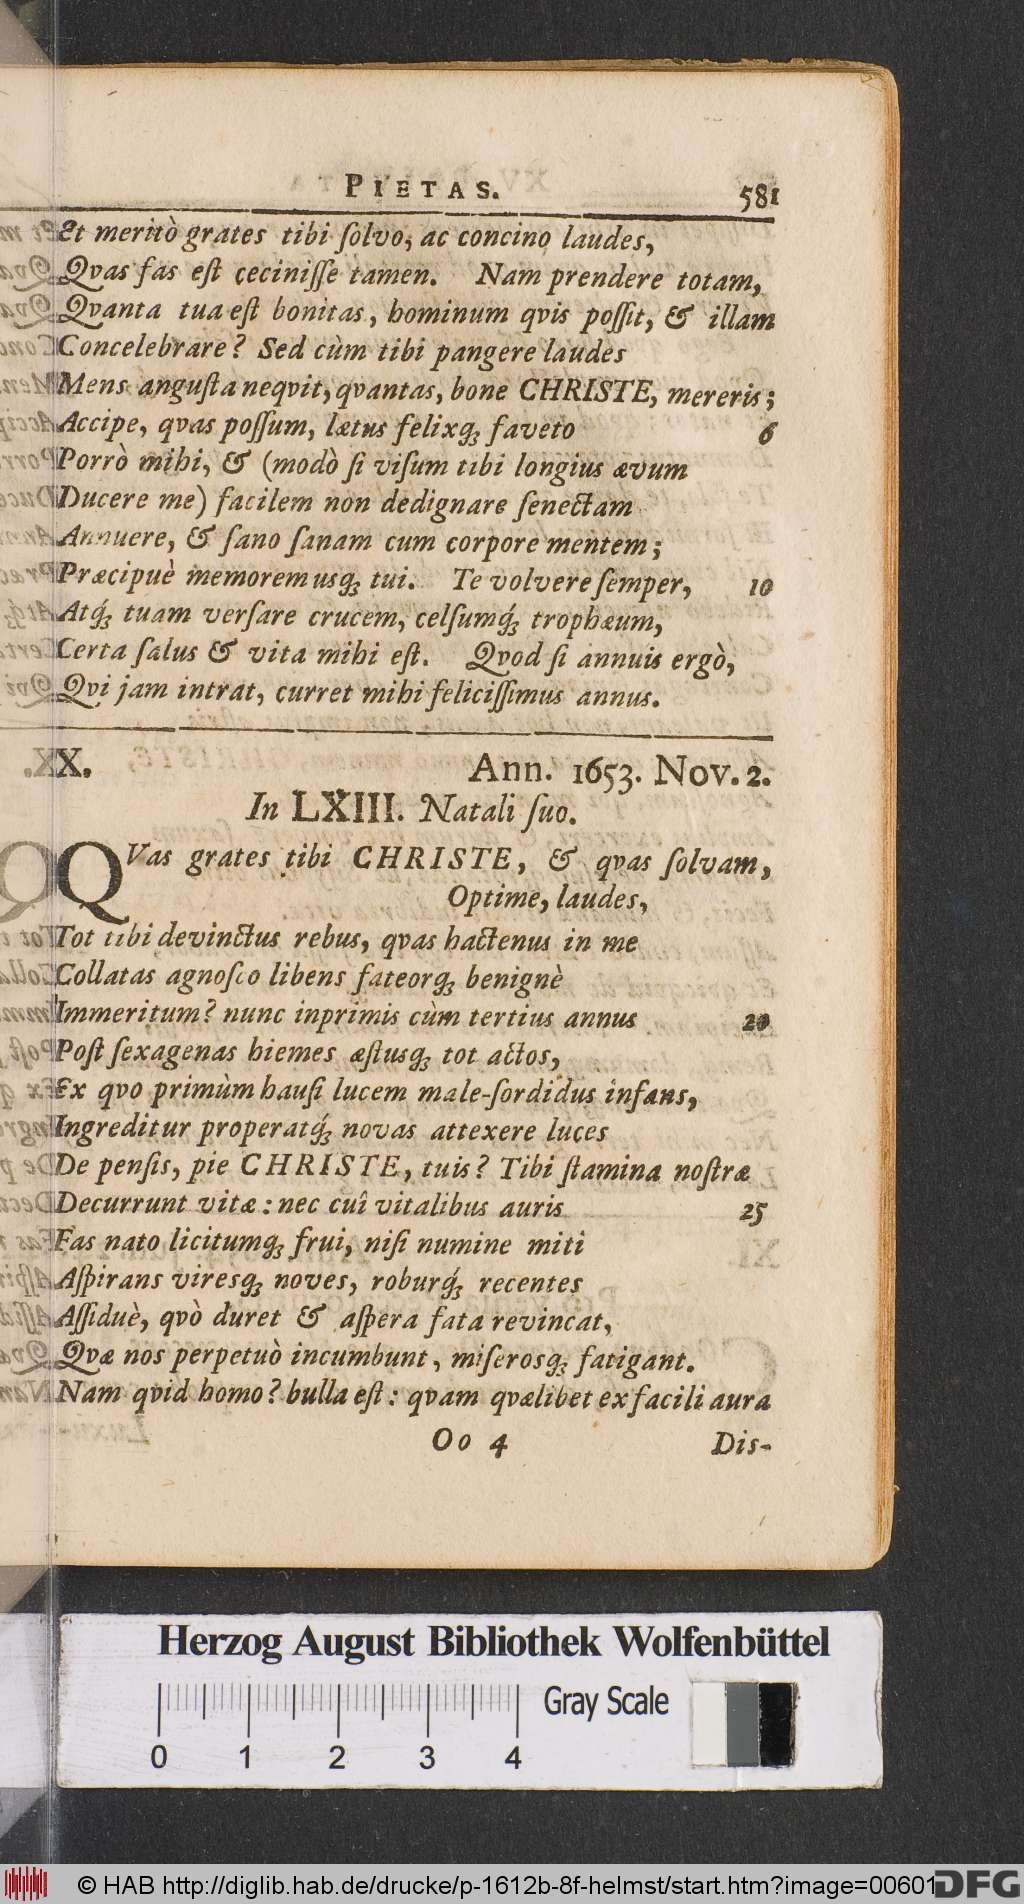 PIETAS. 581
Et meritò grates tibi ſolvo, ac concino laudes,
Qvas fas eſt ceciniſſe tamen. Nam prendere totam,
Qvanta tua eſt bonitas, hominum qvis poſſit, & illam
Concelebrare? Sed cùm tibi pangere laudes
Mens anguſta neqvit, qvantas, bone CHRISTE, mereris;
Accipe, qvas poſſum, lætus felixq; faveto 6
Porrò mihi, & (modò ſi viſum tibi longius ævum
Ducere me) facilem non dedignare ſenectam
Annuere, & ſano ſanam cum corpore mentem;
Præcipuè memorem usq; tui. Te volvere ſemper, 10
Atq́; tuam verſare crucem, celſumq́; trophæum,
Certa ſalus & vita mihi eſt. Qvod ſi annuis ergò,
Qvi jam intrat, curret mihi feliciſſimus annus.
X. Ann. 1653. Nov. 2.
In LXIII. Natali ſuo.
QVas grates tibi CHRISTE, & qvas ſolvam,
Optime, laudes,
Tot tibi devinctus rebus, qvas hactenus in me
Collatas agnoſco libens fateorq; benignè
Immeritum? nunc inprimis cùm tertius annus 20
Poſt ſexagenas hiemes æſtusq; tot actos,
Ex qvo primùm hauſi lucem male-ſordidus infans,
Ingreditur properatq́; novas attexere luces
De penſis, pie CHRISTE, tuis? Tibi ſtamina noſtræ
Decurrunt vitæ: nec cuî vitalibus auris 25
Fas nato licitumq; frui, niſi numine miti
Aſpirans viresq; noves, roburq́; recentes
Aſſiduè, qvò duret & aſpera fata revincat,
Qvæ nos perpetuò incumbunt, miſerosq; fatigant.
Nam qvid homo? bulla eſt: qvam qvælibet ex facili aura
Oo 4 Dis-
Herzog August Bibliothek Wolfenbüttel
Gray Scale
0 1 2 3 4
© HAB http://diglib.hab.de/drucke/p-1612b-8f-helmst/start.htm?image=00601
DFG